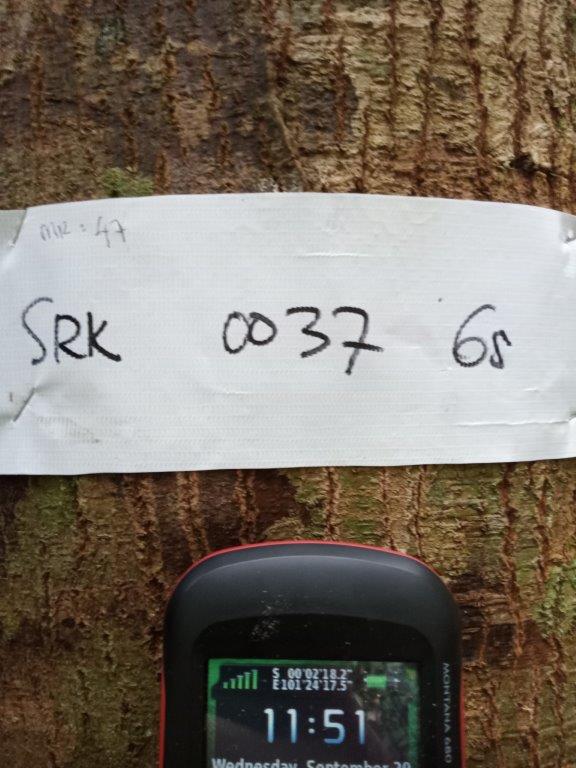 MR: 47
SRK 0037 6s
S 00°02'18.2"
E101°24'17.5"
11:51
Wednesday, September 20
MONTANA 680